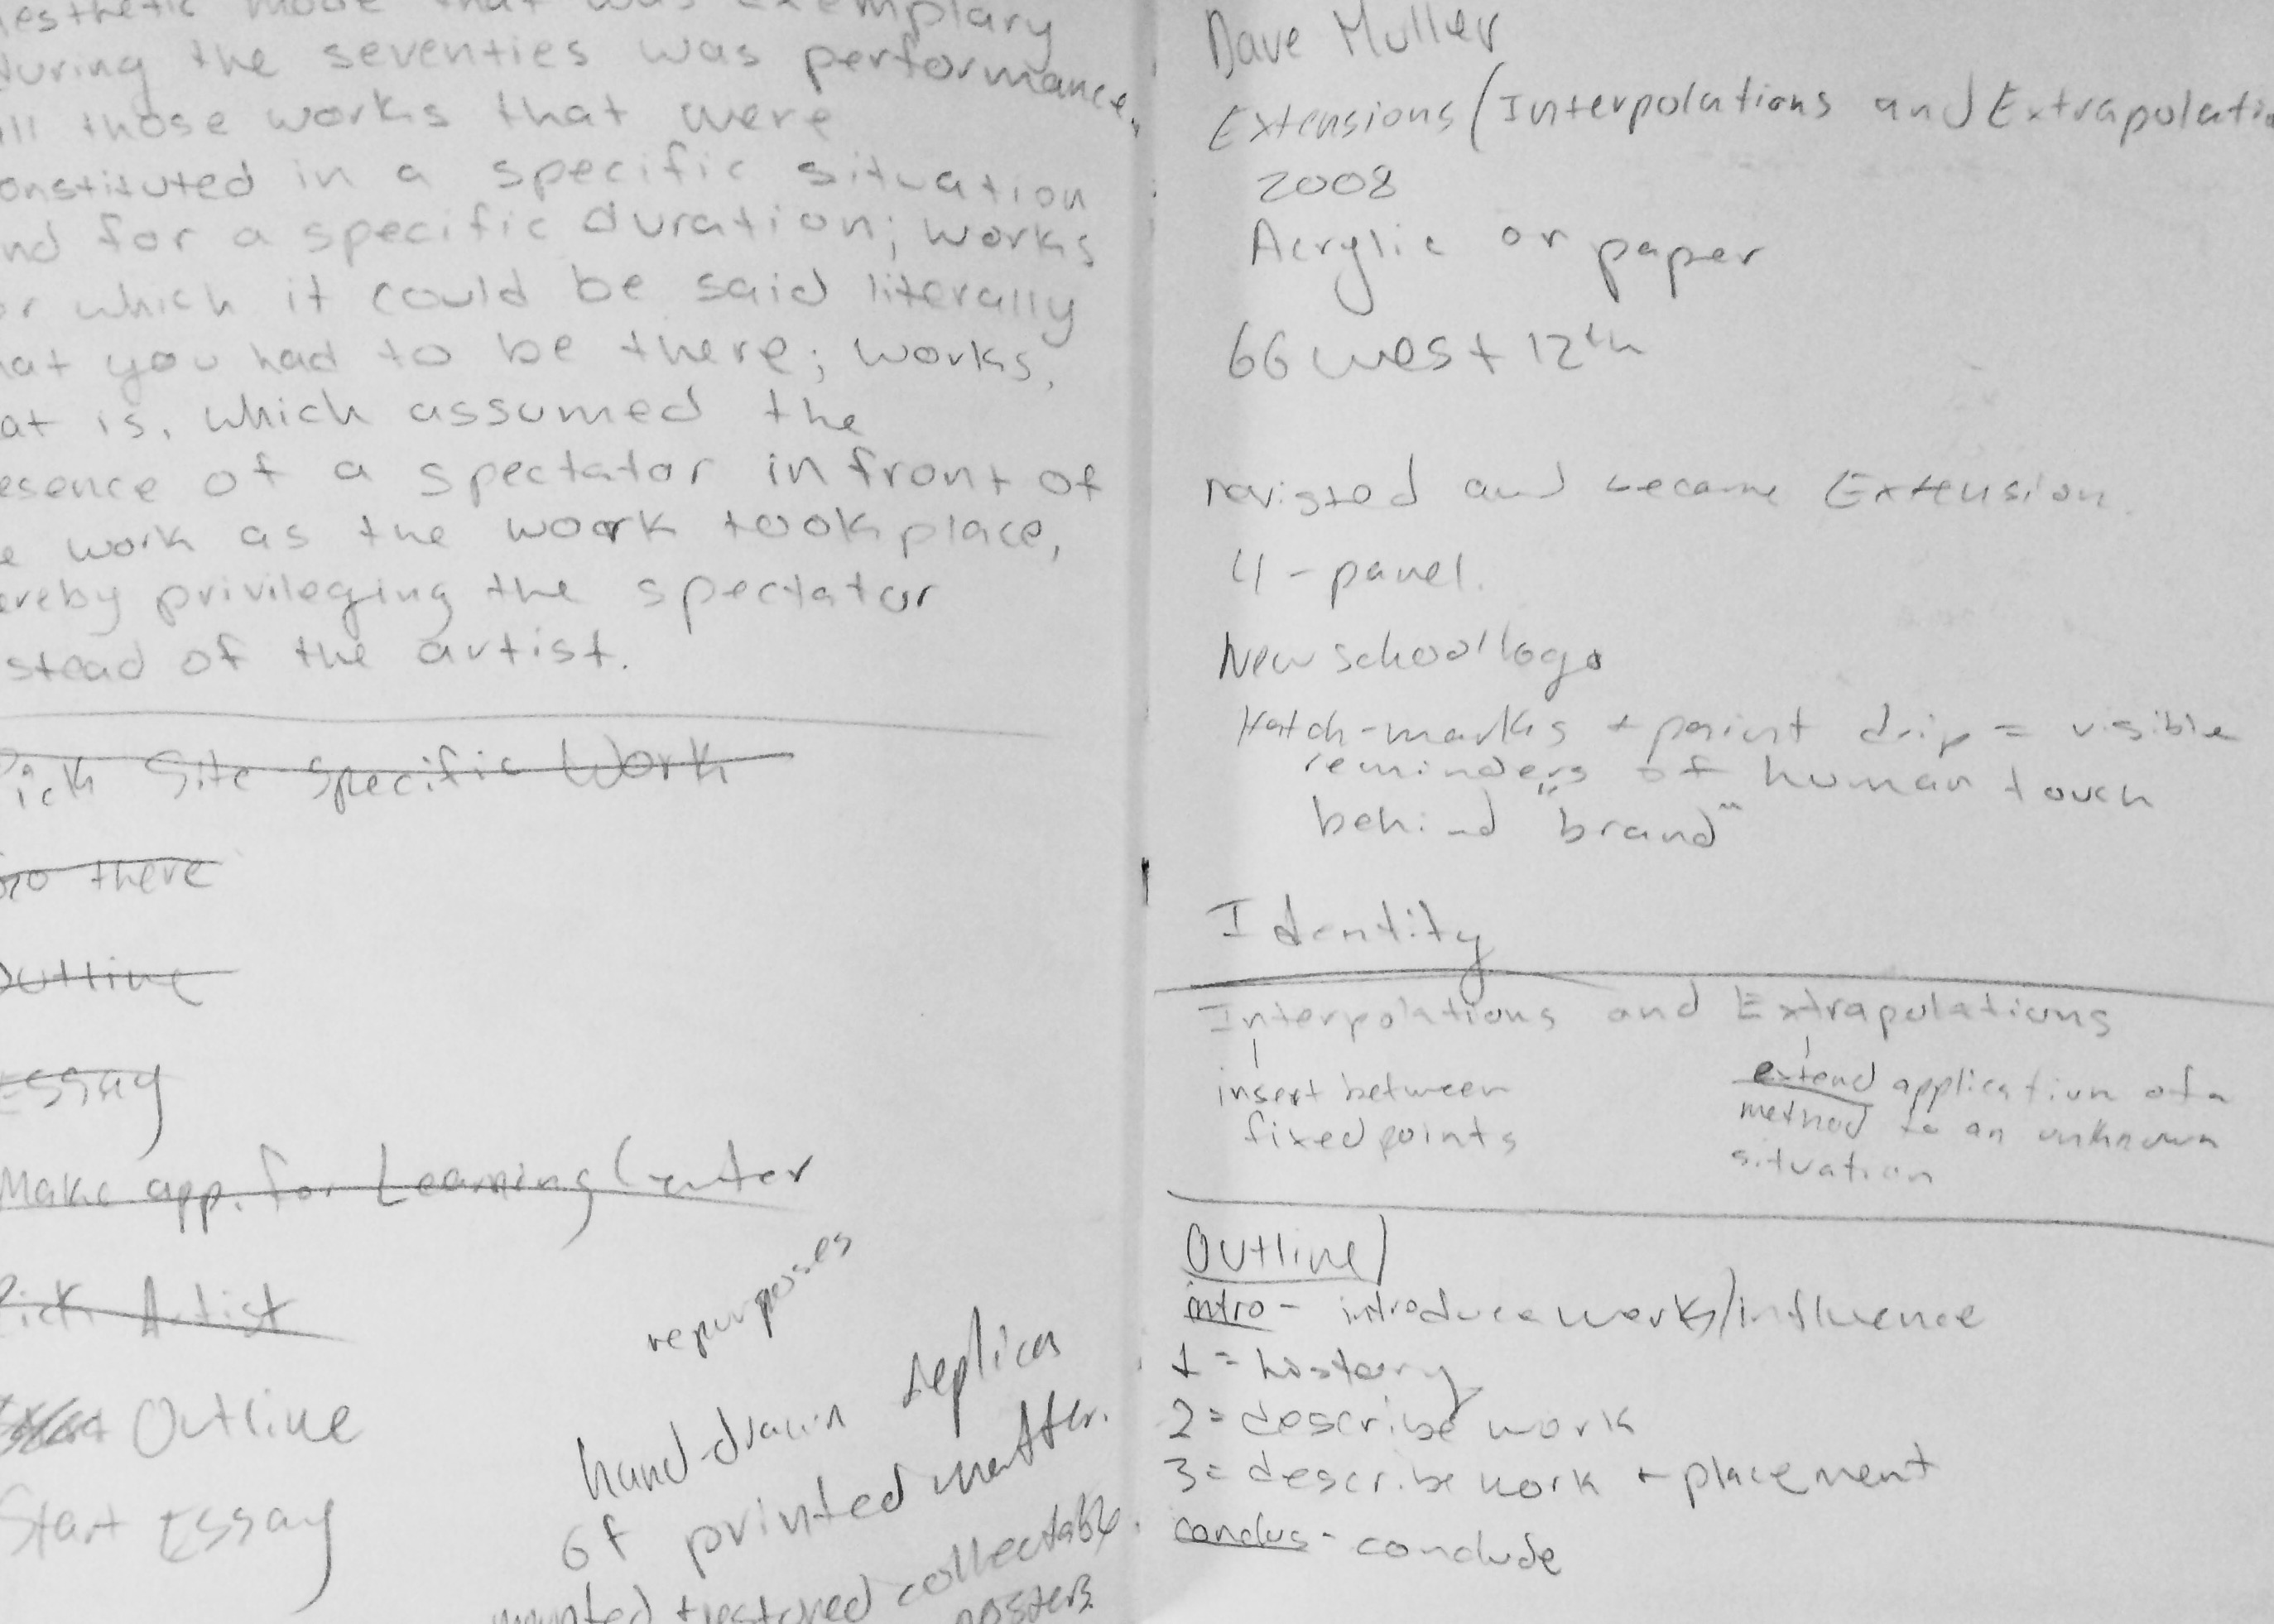 aesthetic mode that was exemplary
during the seventies was performance,
all those works that were
onstituted in a specific situation
nd for a specific duration; works
or which it could be said literally
hat you had to be there; works,
at is, which assumed the
esence of a spectator in front of
e work as the work took place,
ereby privileging the spectator
stead of the artist.
Pick Site Specific Work
Go there
Outline
Essay
Make app. for Learning Center
Pick Artist
Outline
Start Essay
repurposes
hand-drawn replicas
of printed matter.
mounted + restored collectable
posters.
Dave Muller
Extensions (Interpolations and Extrapolatio
2008
Acrylic or paper
66 west 12th
revisted and became Extension.
4-panel.
New school logo
Hatch-marks + paint drip = visible
reminders of human touch
behind "brand"
Identity
Interpolations and Extrapolations
insert between
fixed points
extend application of a
method to an unknown
situation
Outline
intro - introduce works/influence
1 = history
2 = describe work
3 = describe work + placement
conclus - conclude